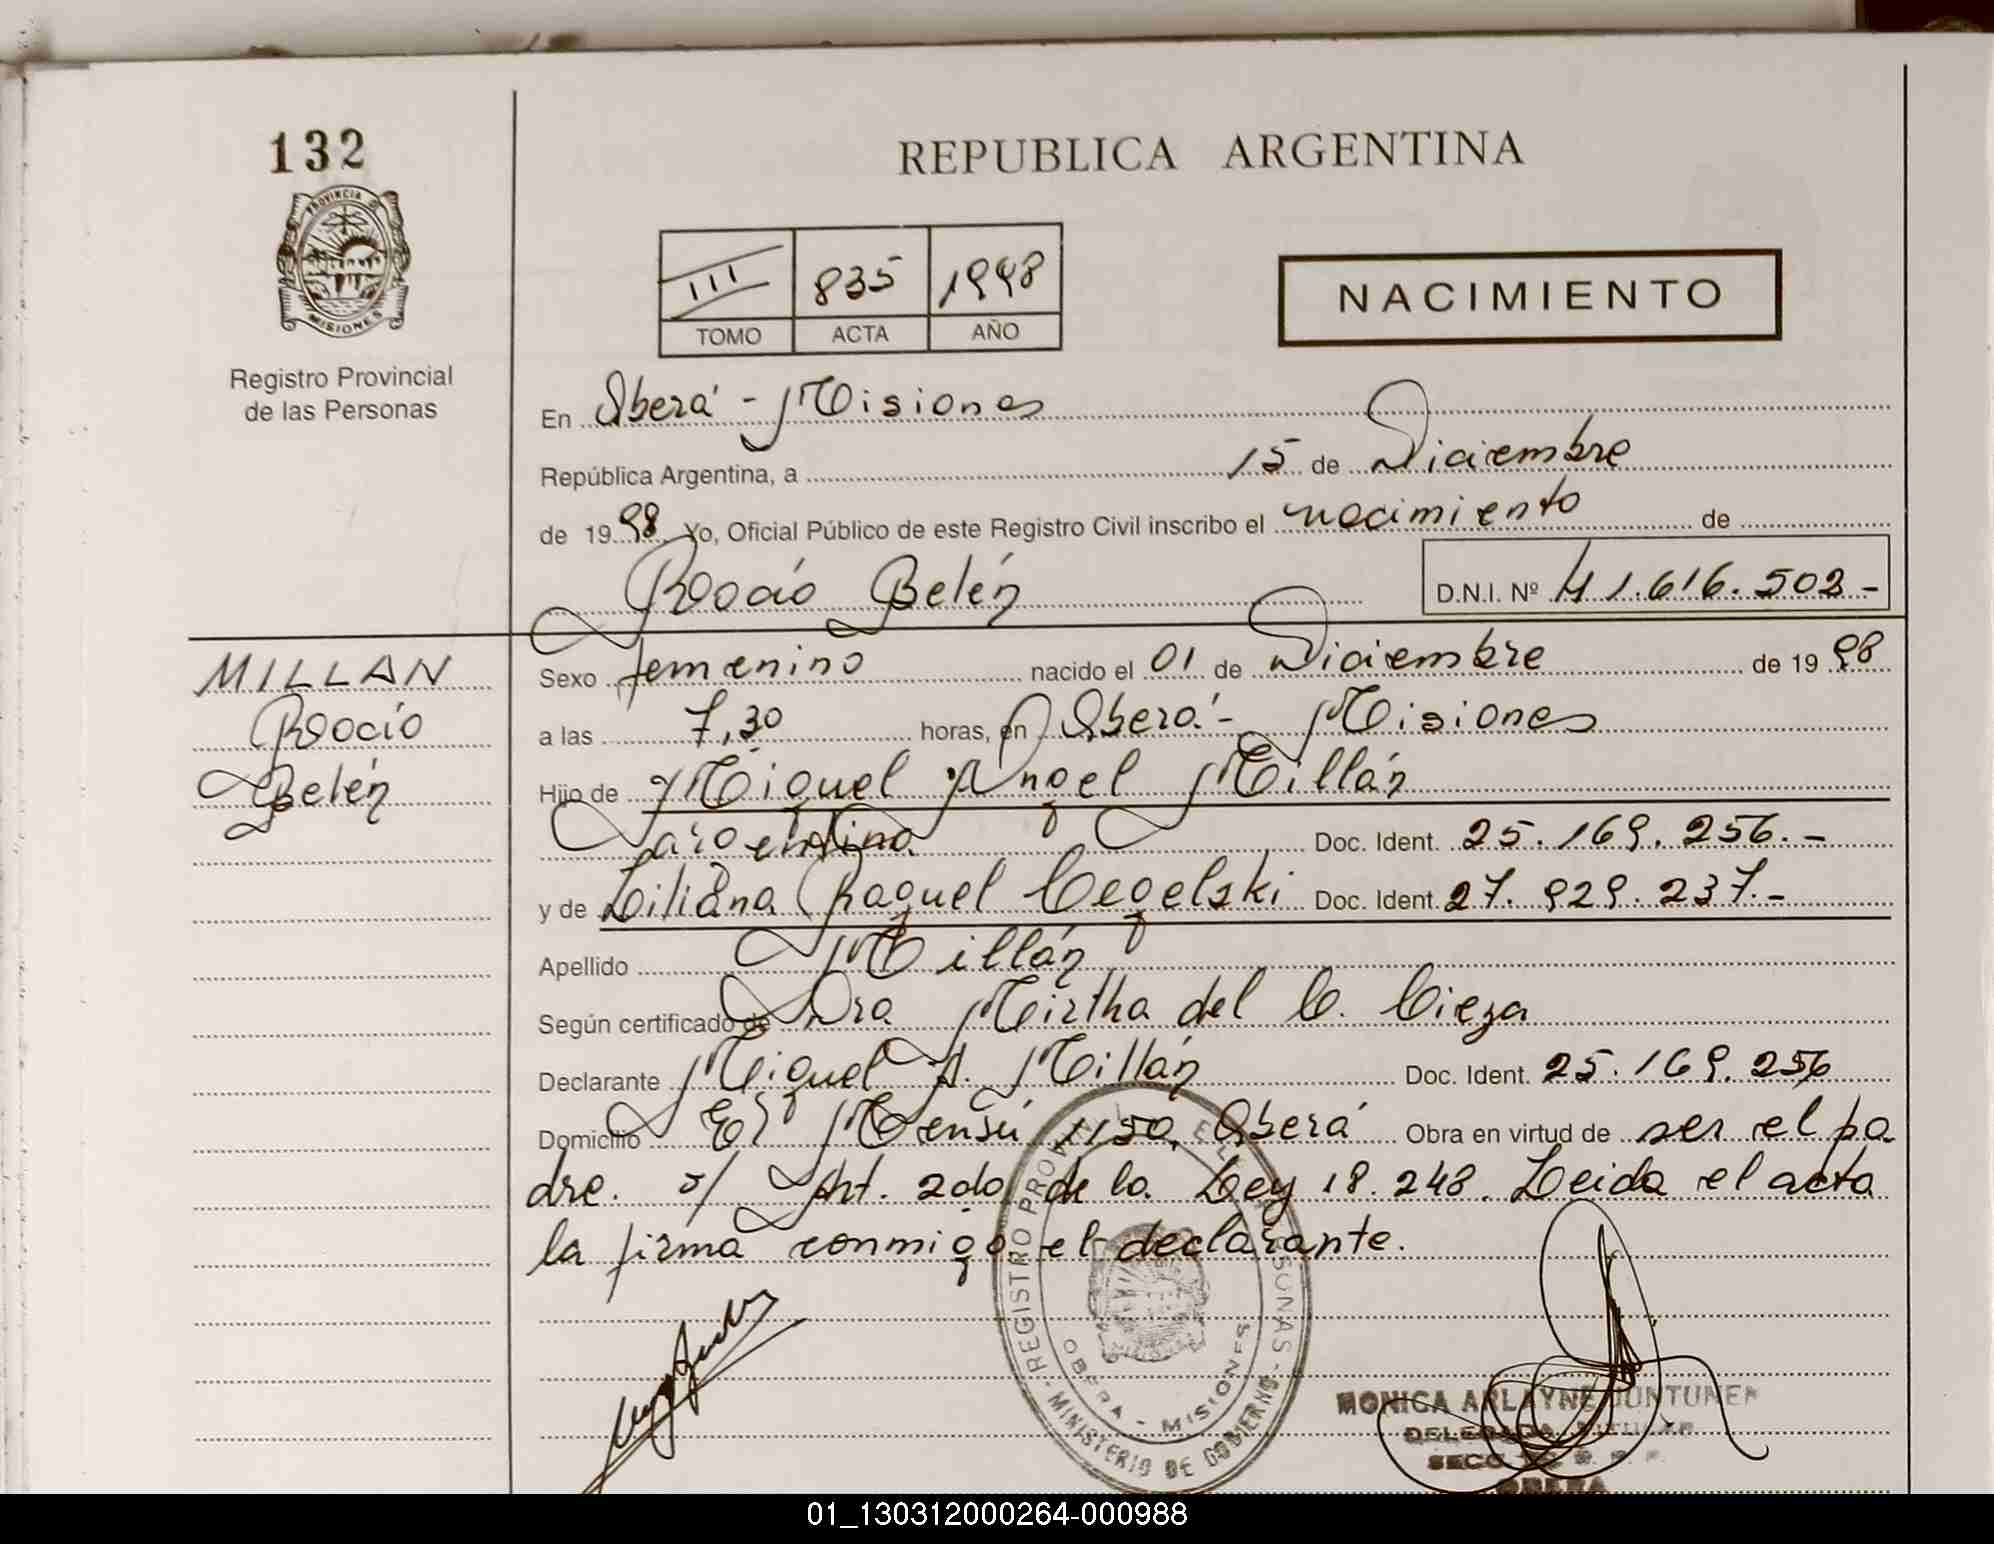 132
PROVINCIA DE
MISIONES
Registro Provincial
de las Personas
REPUBLICA ARGENTINA
III 835 1998
TOMO ACTA AÑO
NACIMIENTO
En Oberá - Misiones
República Argentina, a 15 de Diciembre
de 1998 Yo, Oficial Público de este Registro Civil inscribo el nacimiento de
Rocío Belén D.N.I. Nº 41.616.502.-
MILLAN
Rocío
Belén
Sexo femenino nacido el 01 de Diciembre de 1998
a las 7,30 horas, en Oberá - Misiones
Hijo de Miguel Angel Millán
argentino Doc. Ident. 25.169.256.-
y de Liliana Raquel Cegelski Doc. Ident. 27.929.237.-
Apellido Millán
Según certificado de Dra Mirtha del C. Cieza
Declarante Miguel A. Millán Doc. Ident. 25.169.256
Domicilio El Mensú 1150, Oberá Obra en virtud de ser el pa
dre. s/ Art. 2do de la Ley 18.248. Leida el acta
la firma conmigo el declarante.
REGISTRO PROV DE LAS PERSONAS - MINISTERIO DE GOBIERNO
OBERA - MISIONES
MONICA ARLAYNE JUNTUNEN
DELEGADA TITULAR
SECC R. P. P.
OBERA
01_130312000264-000988